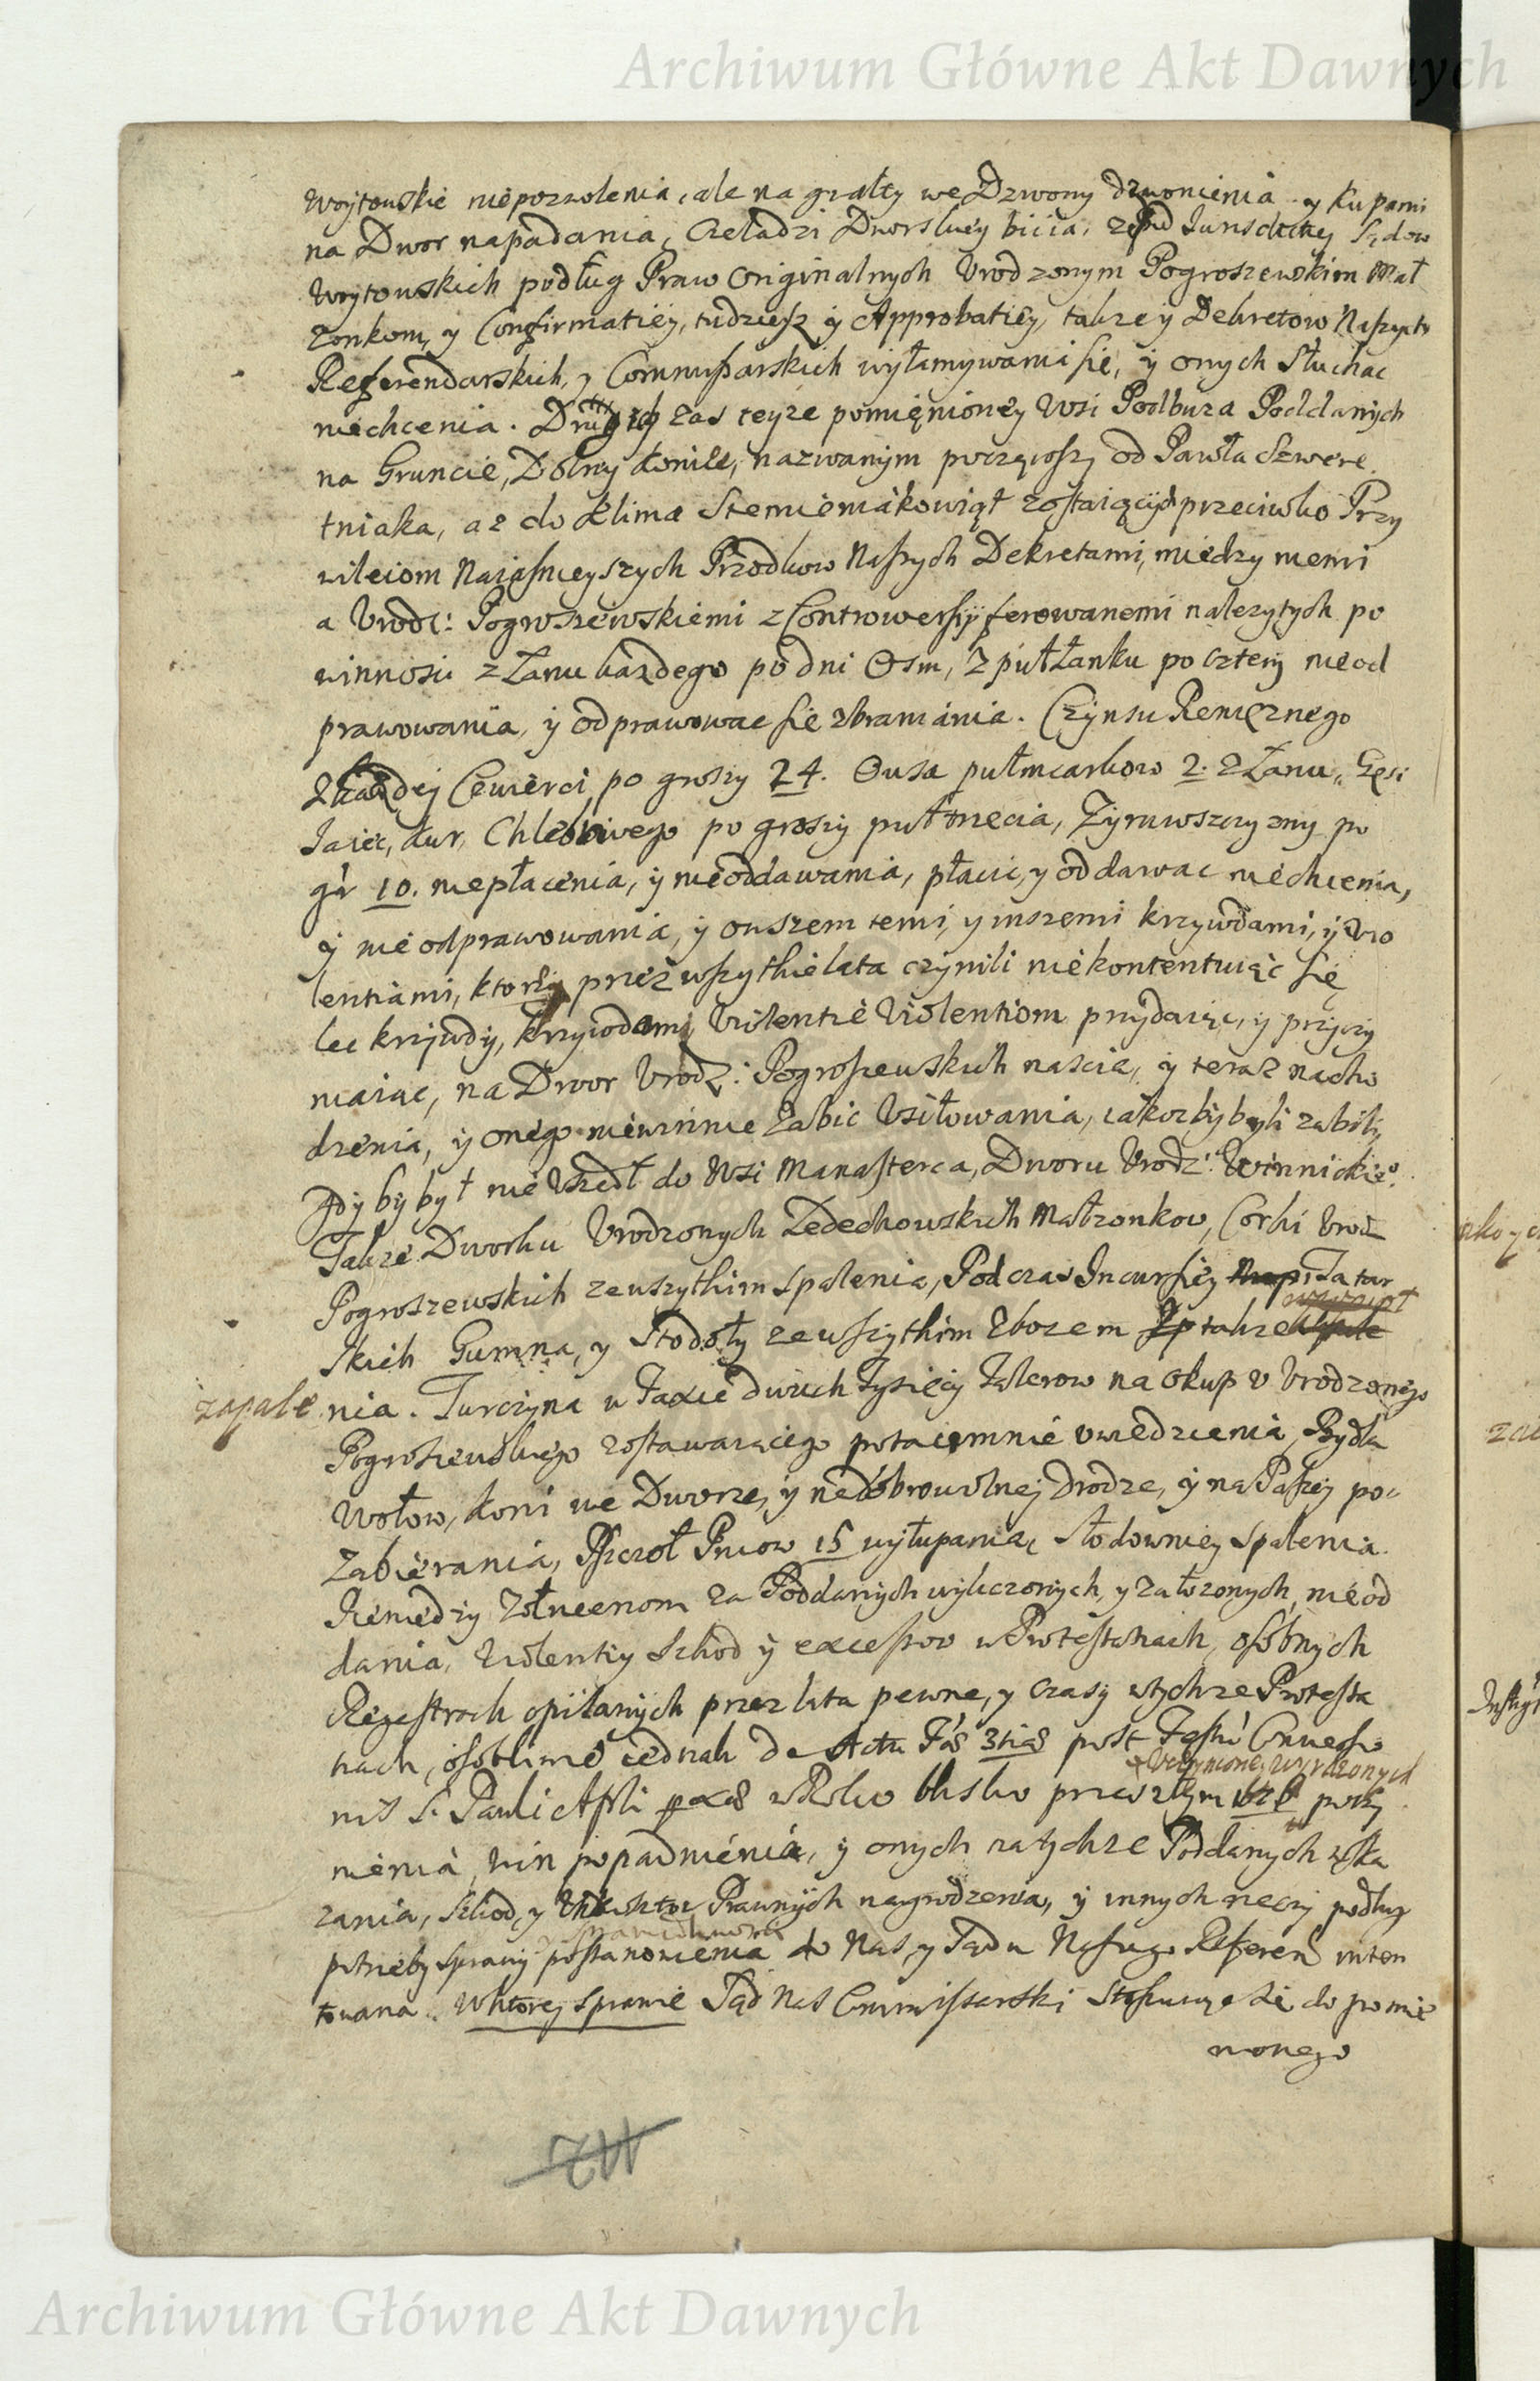 Archiwum Główne Akt Dawnych
Woytowskie niepozwolenia, ale na gwałty we Dzwony dzwonienia y kupami
na Dwor napadania, Czeladzi Dworskiey bicia, zepod Jurisdictiey Sądow
Woytowskich podług Praw Originalnych Vrodzonym Pogroszewskim Mał
zonkom, y Confirmatiiey, tudziesz y Approbatiey, takze y Dekretow Naszych
Referendarskich, y Commissarskich wyłamywania się, y onych Słuchac
niechcenia. Drugich zas teyze pomięnioney Wsi Podbuza Poddanych
na Gruncie, Dolny Koniec, nazwanym począwszy od Pawła Szwere
tniaka, az do Klima Stemieniakowiąt zostaiących przeciwko Przy
wileiom Naiasnieyszych Przodkow Naszych Dekretami, między niemi
a Vrodz: Pogroszewskiemi z Controwersyi ferowanemi nalezytych po
winnosci z Łanu kazdego po dni Osm, z puł Łanku po cztery nieod
prawowania, y odprawowac się zbraniania. Czynsu Pienięznego
z kazdej Cwierci po groszy 24. Owsa pułmiarkow 2. z Łanu, Gęsi
Jaiec, Kur, Chlebowego po groszy puł trzecia, Zyrowszczyzny po
gr 10. niepłacenia, y nieoddawania, płacic, y oddawac niechcenia,
y nie odprawowania, y owszem temi, y inszemi krzywdami, y Vio
lentiami, ktorzy przez wszytkie lata czynili niekontentuiąc się
lec krzywdy, krzywdami Violentie Violentiom przydaiąc, y przyczy
niaiąc, na Dwor Vrodz: Pogroszewskich nascia, y teraz nacho
dzenia, y onego niewinnie Zabic Vsiłowania, iakozby byli zabili,
gdy by był nie Vszedł do Wsi Manasterca, Dworu Vrodz: Winnickie°.
Takze Dworku Vrodzonych Zedechowskich Małzonkow, Corki Vrodz
Pogroszewskich zewszytkim Spalenia, Podczas Incursiey Tatar
skich Gumna, y Stodoły zewszytkim Zbozem takze
zapale nia. Turczyna w Taxie dwuch Tysięcy Talerow na okup v Vrodzonego
Pogroszewskiego zostawaiącego potaiemnie vwiedzienia, Bydła
Wołow, koni we Dworze, y nadobrowolnej drodze, y na Paszy po
zabierania, Pszczoł Pniow 15 wyłupania, Słodowniey Spalenia.
Pieniedzy Zołnierzom za Poddanych wyliczonych, y załozonych, nieod
dania, Violentiy Szkod y excessow w Protestatiach, osobnych
Regestrach opisanych przez lata pewne, y czasy wtychze Protesta
tiach, osobliwie iednak de Actu Fa 3tia post Festu Conuersio
nis S. Pauli Apli w Roku blisko przeszłym poczy
nienia, win popadnienia, y onych na tychze Poddanych wska
zania, Szkod, y Prawnych nagrodzenia, y innych rzeczy podług
potrzeby Sprawy postanowienia do Nas, y Sądu Naszego Referen inten
towana. Wktorej Sprawie Sąd Nas Commissarski Stosuiąc się do pomie
nionego
Archiwum Główne Akt Dawnych